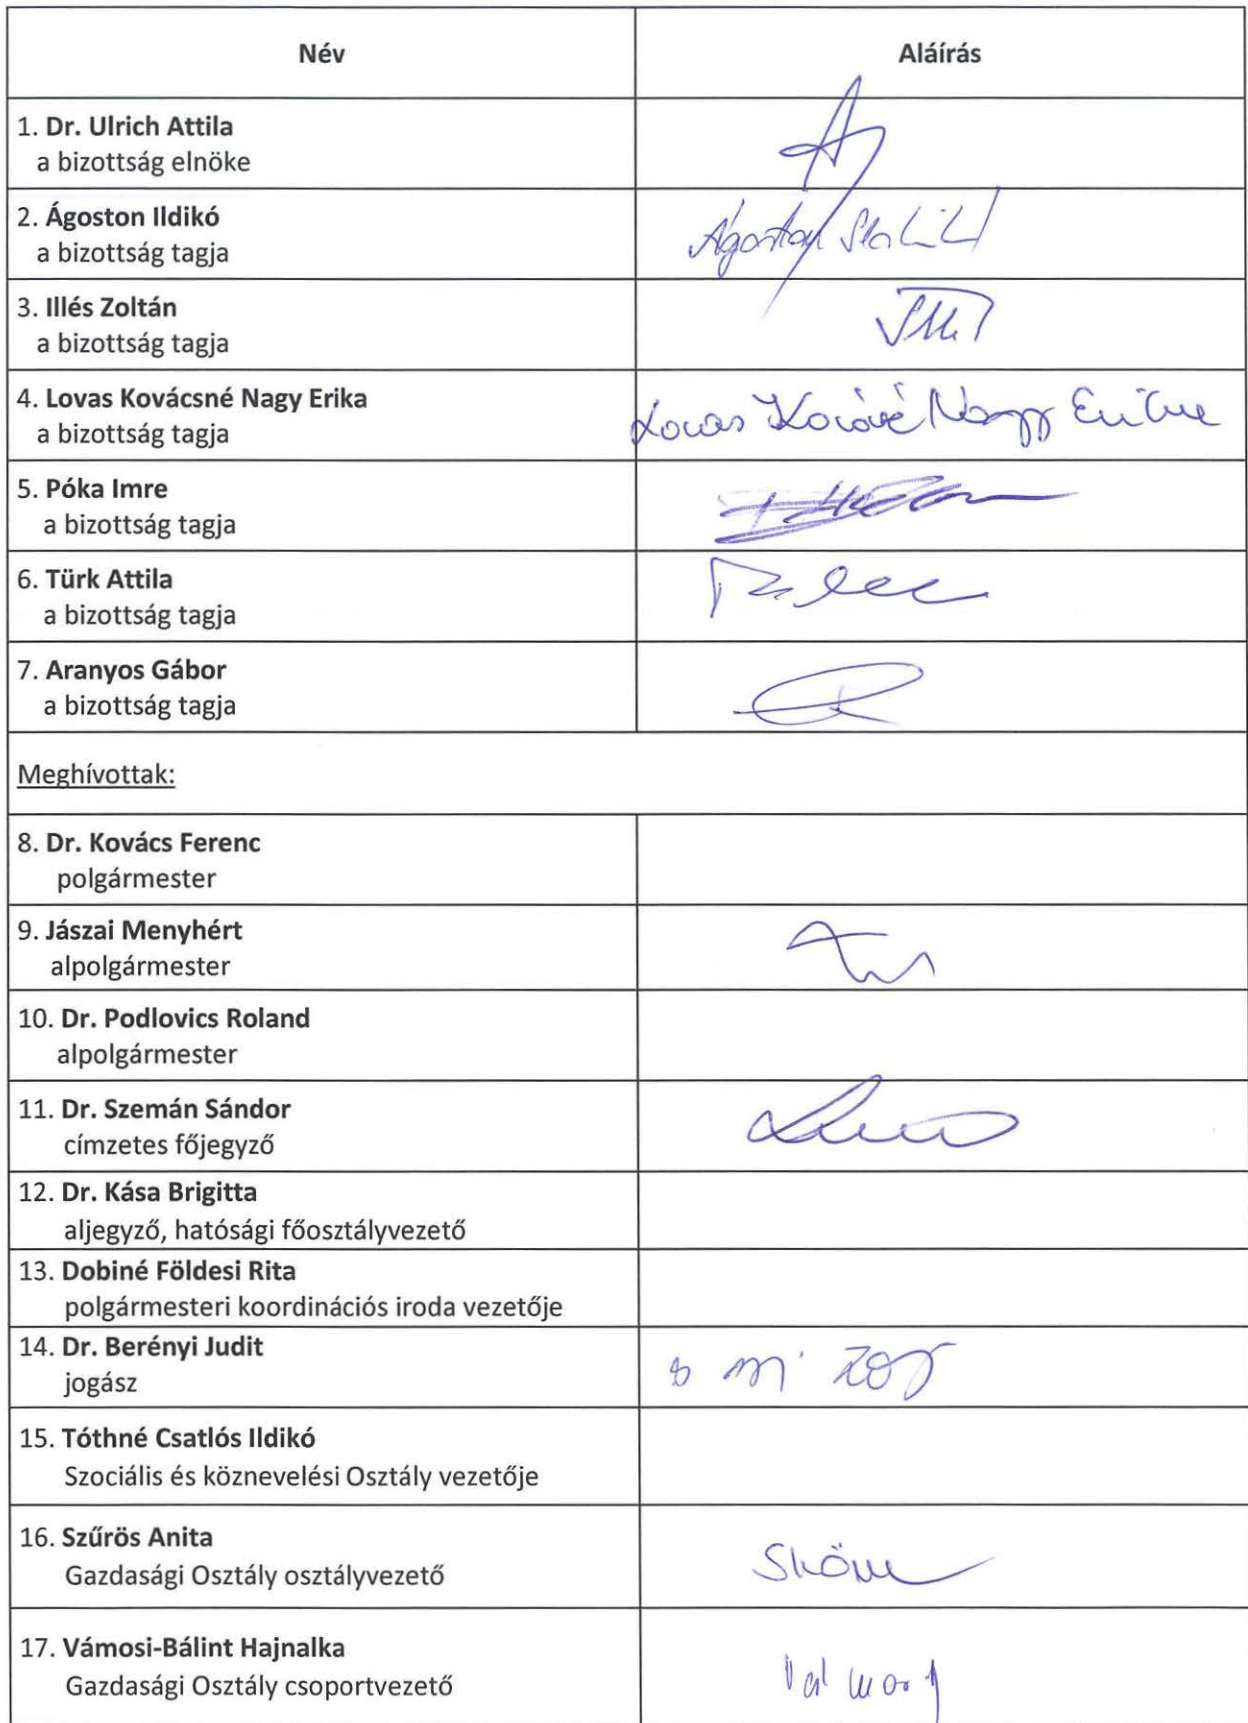 Név
Aláírás
1. Dr. Ulrich Attila
a bizottság elnöke
2. Ágoston Ildikó
a bizottság tagja
Ágoston
3. Illés Zoltán
a bizottság tagja
4. Lovas Kovácsné Nagy Erika
a bizottság tagja
Lovas Nagy
5. Póka Imre
a bizottság tagja
6. Türk Attila
a bizottság tagja
7. Aranyos Gábor
a bizottság tagja
Meghívottak:
8. Dr. Kovács Ferenc
polgármester
9. Jászai Menyhért
alpolgármester
10. Dr. Podlovics Roland
alpolgármester
11. Dr. Szemán Sándor
címzetes főjegyző
12. Dr. Kása Brigitta
aljegyző, hatósági főosztályvezető
13. Dobiné Földesi Rita
polgármesteri koordinációs iroda vezetője
14. Dr. Berényi Judit
jogász
15. Tóthné Csatlós Ildikó
Szociális és köznevelési Osztály vezetője
16. Szűrös Anita
Gazdasági Osztály osztályvezető
17. Vámosi-Bálint Hajnalka
Gazdasági Osztály csoportvezető